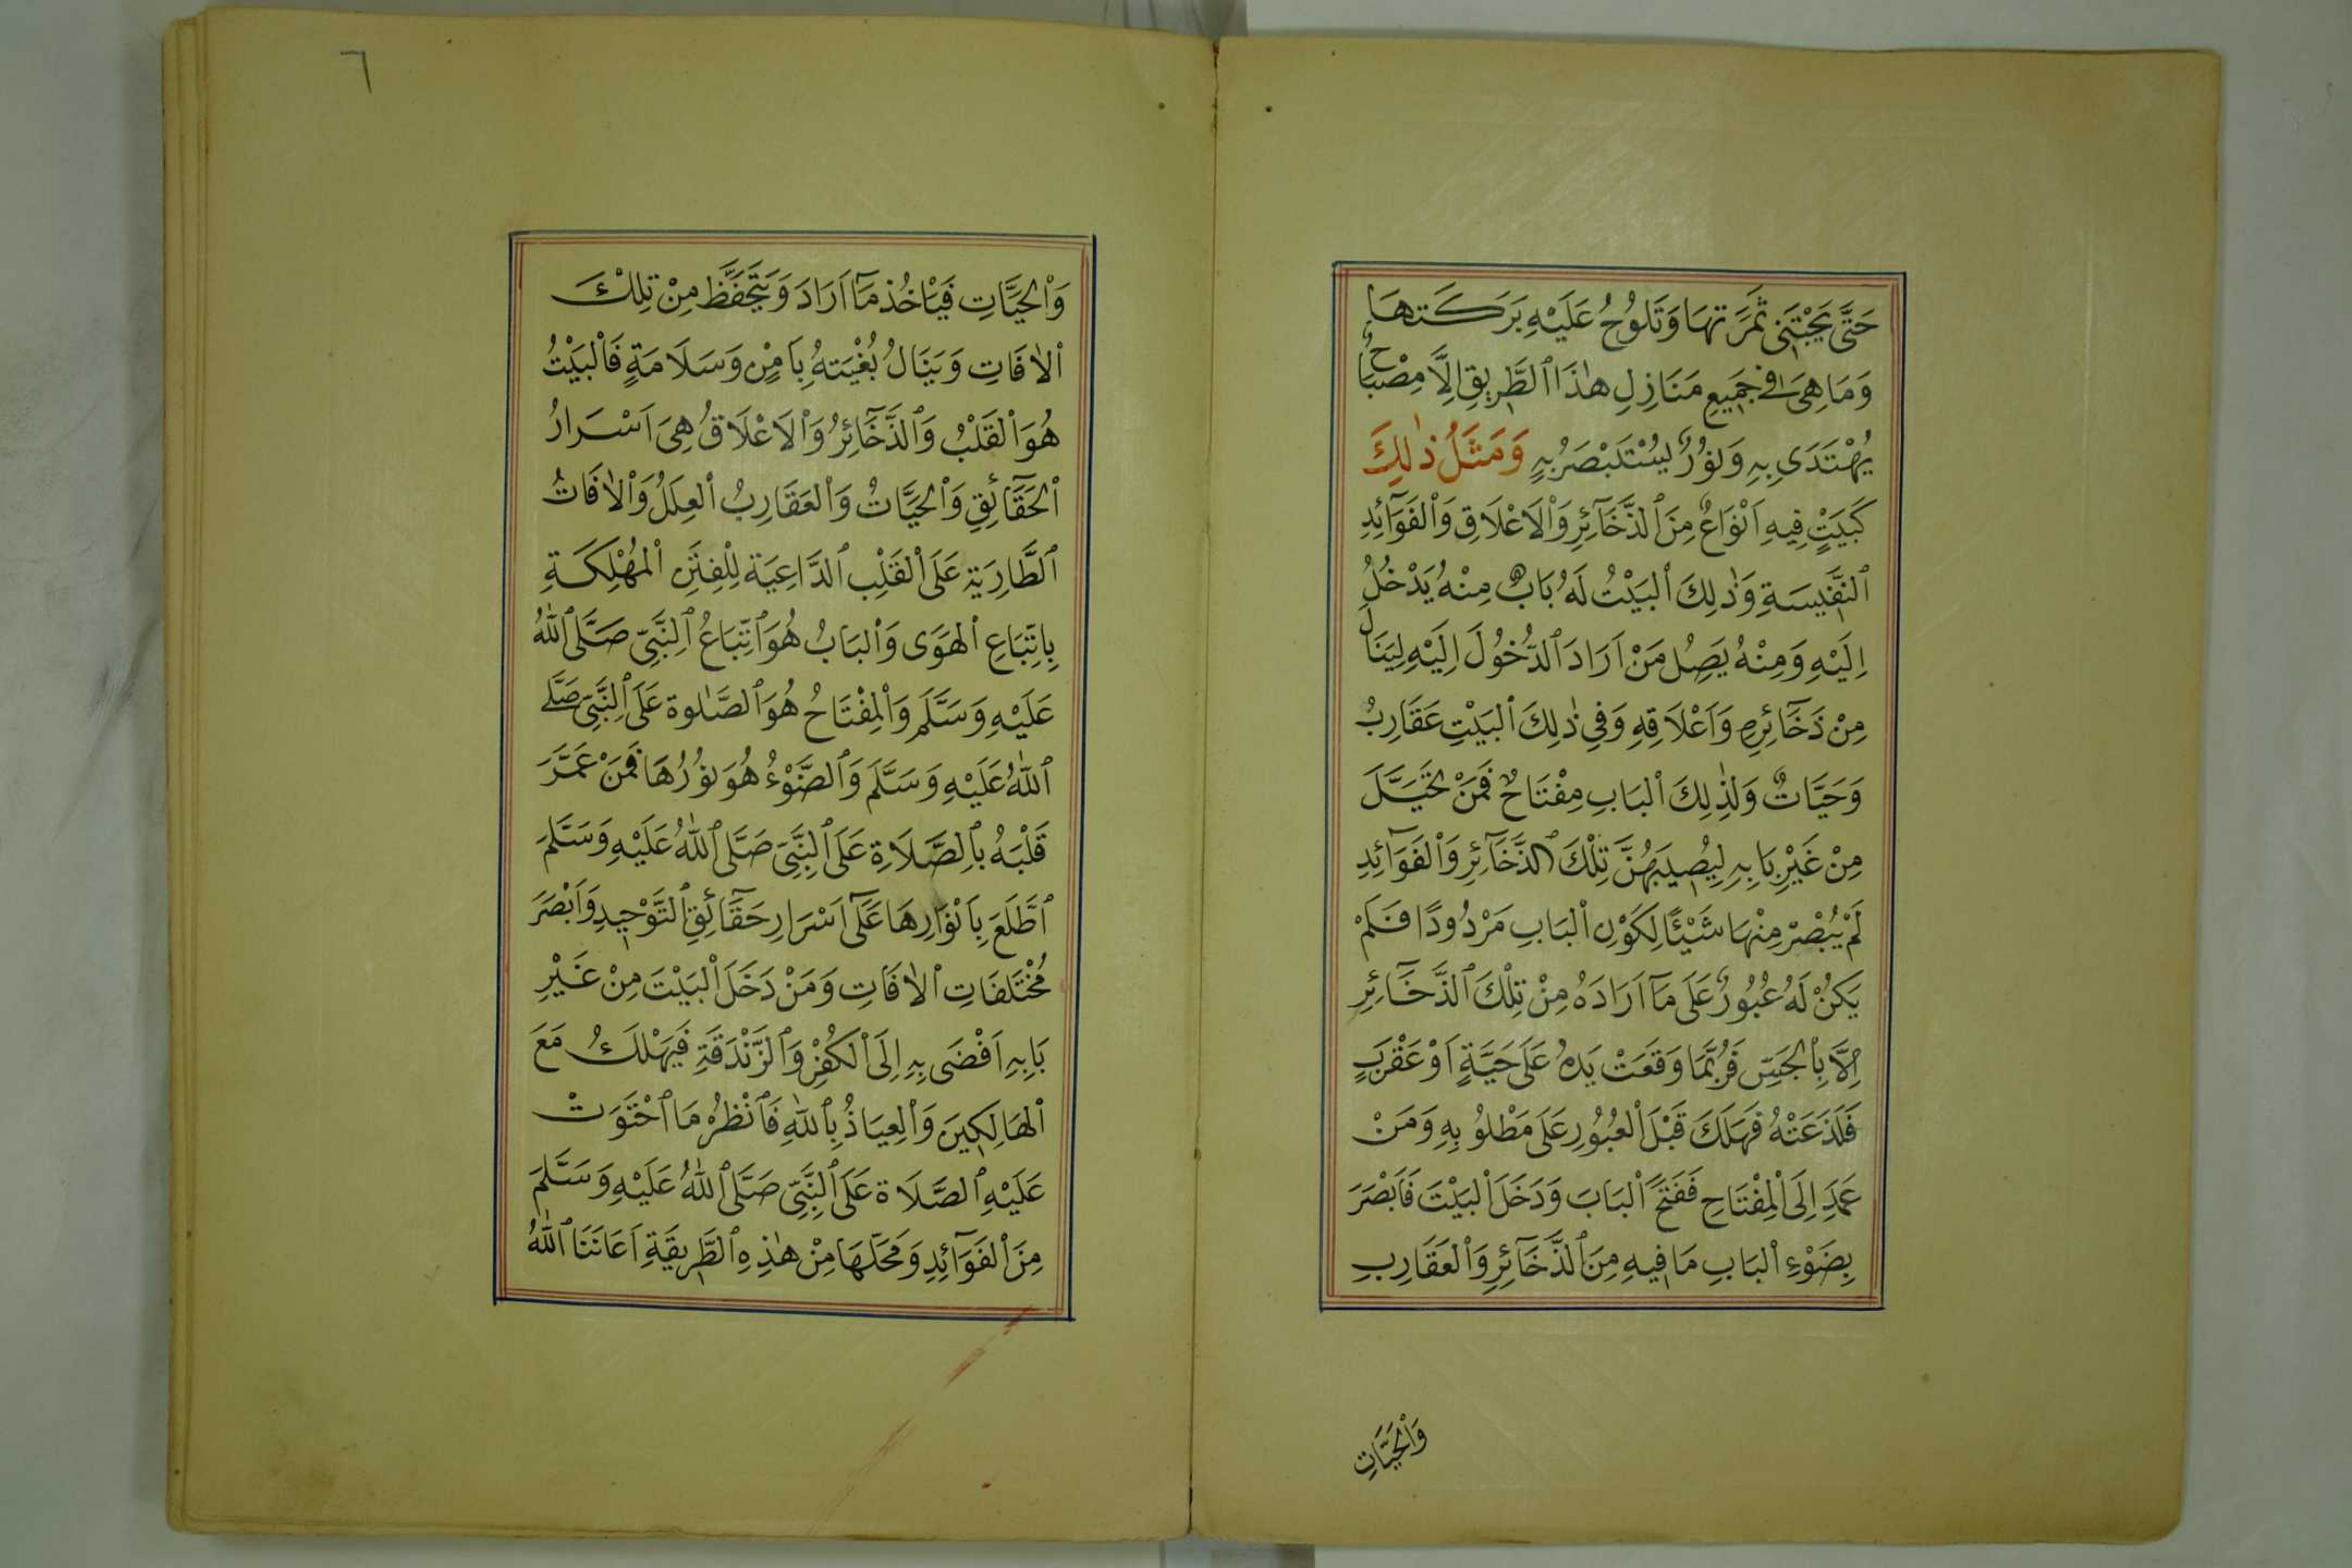 حَتَّى يَجْتَنِى ثَمَرَتهَا وَتَلُوحُ عَلَيْهِ بَرَكَتهَا
وَمَا هِىَ فِى جَمِيعِ مَنَازِلِ هٰذَا ٱلطَّرِيقِ اِلَّا مِصْبَاحٌ
يُهْتَدَى بِهِ وَنُورٌ يُسْتَبْصَرُ بِهِ وَمَثَلُ ذٰلِكَ
كَبَيْتٍ فِيهِ اَنْوَاعٌ مِنَ ٱلذَّخَآئِرِ وَٱلْاَعْلَاقِ وَٱلْفَوَآئِدِ
ٱلنَّفِيسَةِ وَذٰلِكَ ٱلْبَيْتُ لَهُ بَابٌ مِنْهُ يَدْخُلُ
اِلَيْهِ وَمِنْهُ يَصِلُ مَنْ اَرَادَ ٱلدُّخُولَ اِلَيْهِ لِيَنَالَ
مِنْ ذَخَآئِرِهِ وَاَعْلَاقِهِ وَفِي ذٰلِكَ ٱلْبَيْتِ عَقَارِبُ
وَحَيَّاتٌ وَلِذٰلِكَ ٱلْبَابِ مِفْتَاحٌ فَمَنْ تَحَيَّلَ
مِنْ غَيْرِ بَابِهِ لِيُصِيبَ مِنْ تِلْكَ ٱلذَّخَآئِرِ وَٱلْفَوَآئِدِ
لَمْ يُبْصِرْ مِنْهَا شَيْئًا لِكَوْنِ ٱلْبَابِ مَرْدُودًا فَلَمْ
يَكُنْ لَهُ عُبُورٌ عَلَى مَآ اَرَادَهُ مِنْ تِلْكَ ٱلذَّخَآئِرِ
اِلَّا بِٱلْجَسِّ فَرُبَّمَا وَقَعَتْ يَدهُ عَلَى حَيَّةٍ اَوْ عَقْرَبٍ
فَلَذَعَتْهُ فَهَلَكَ قَبْلَ ٱلْعُبُورِ عَلَى مَطْلُوبِهِ وَمَنْ
عَمَدَ اِلَى ٱلْمِفْتَاحِ فَفَتَحَ ٱلْبَابَ وَدَخَلَ ٱلْبَيْتَ فَاَبْصَرَ
بِضَوْءِ ٱلْبَابِ مَا فِيهِ مِنَ ٱلذَّخَآئِرِ وَٱلْعَقَارِبِ
وَٱلْحَيَّاتِ
٦
وَٱلْحَيَّاتِ فَيَاْخُذ مَآ اَرَادَ وَيَتَحَفَّظ مِنْ تِلْكَ
ٱلْاٰفَاتِ وَيَنَالُ بُغْيَتهُ بِاَمْنٍ وَسَلَامَةٍ فَٱلْبَيْتُ
هُوَ ٱلْقَلْبُ وَٱلذَّخَآئِرُ وَٱلْاَعْلَاقُ هِىَ اَسْرَارُ
ٱلْحَقَآئِقِ وَٱلْحَيَّاتُ وَٱلْعَقَارِبُ ٱلْعِلَلُ وَٱلْاٰفَاتُ
ٱلطَّارِيَةِ عَلَى ٱلْقَلْبِ ٱلدَّاعِيَة لِلْفِتَنِ ٱلْمُهْلِكَةِ
بِاتِّبَاعِ ٱلْهَوَى وَٱلْبَابُ هُوَ ٱتِّبَاعُ ٱلنَّبِىِّ صَلَّى ٱللّٰهُ
عَلَيْهِ وَسَلَّمَ وَٱلْمِفْتَاحُ هُوَ ٱلصَّلٰوة عَلَى ٱلنَّبِىِّ صَلَّى
ٱللّٰهُ عَلَيْهِ وَسَلَّمَ وَٱلضَّوْءُ هُوَ نُورُهَا فَمَنْ عَمَّرَ
قَلْبَهُ بِٱلصَّلَاةِ عَلَى ٱلنَّبِىِّ صَلَّى ٱللّٰهُ عَلَيْهِ وَسَلَّمَ
ٱطَّلَعَ بِاَنْوَارِهَا عَلَى اَسْرَارِ حَقَآئِقِ ٱلتَّوْحِيدِ وَاَبْصَرَ
مُخْتَلَفَاتِ ٱلْاٰفَاتِ وَمَنْ دَخَلَ ٱلْبَيْتَ مِنْ غَيْرِ
بَابِهِ اَفْضَى بِهِ اِلَى ٱلْكُفْرِ وَٱلزَّنْدَقَةِ فَيَهْلَكُ مَعَ
ٱلْهَالِكِينَ وَٱلْعِيَاذُ بِٱللّٰهِ فَٱنْظُرْ مَا ٱحْتَوَتْ
عَلَيْهِ ٱلصَّلَاة عَلَى ٱلنَّبِىِّ صَلَّى ٱللّٰهُ عَلَيْهِ وَسَلَّمَ
مِنَ ٱلْفَوَآئِدِ وَمَحَلّهَا مِنْ هٰذِهِ ٱلطَّرِيقَةِ اَعَانَنَا ٱللّٰهُ